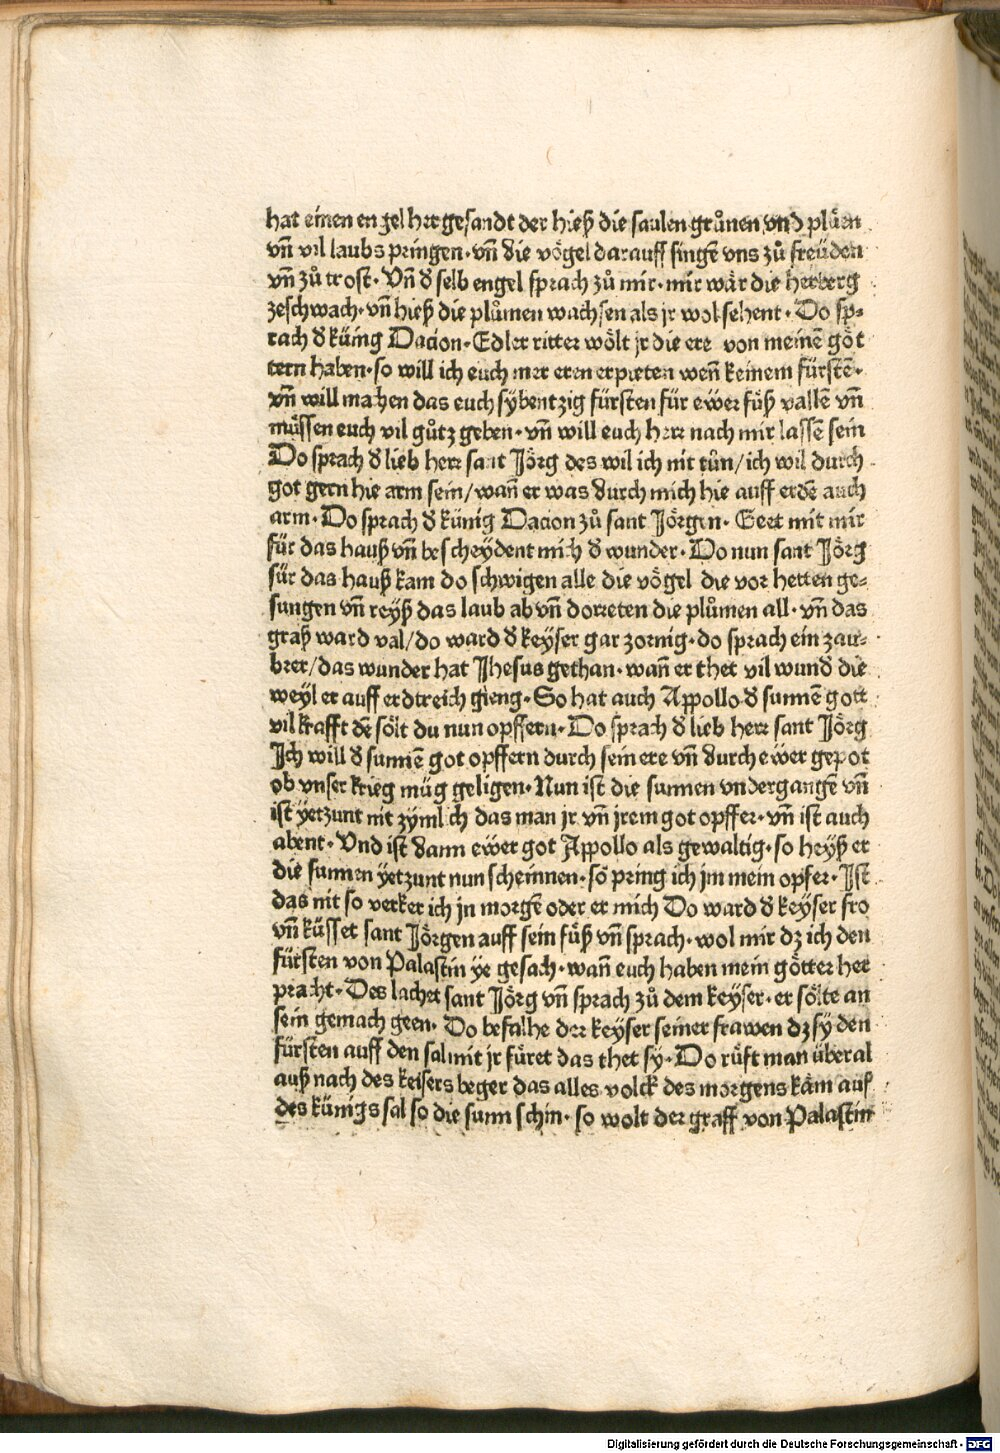 hat einen engel her gesandt der hieß die saulen grůnen vnd plůen
vñ vil laubs pringen · vñ die vögel darauff singē vns zů freüden
vñ zů trost · Vñ d̕ selb engel sprach zů mir · mir wår die herberg
zeschwach · vñ hieß die plůmen wachsen als jr wol sehent · Do sp⸗
rach d̕ küing Dacion · Edler ritter wölt jr die ere von meinē göt
tern haben · so will ich euch mer eren erpieten weñ keinem fürstē ·
vñ will machen das euch sybentzig fürsten für ewer füß vallē vñ
müssen euch vil gůtz geben · vñ will euch herr nach mir lassē sein
Do sprach d̕ lieb herr sant Jörg des wil ich nit tůn / ich wil durch
got gern hie arm sein / wañ er was durch mich hie auff erdē auch
arm · Do sprach d̕ künig Dacion zů sant Jörgen · Geet mit mir
für das hauß vñ bescheydent mich d̕ wunder · Do nun sant Jörg
für das hauß kam do schwigen alle die vögel die vor hetten ge⸗
sungen vñ reyß das laub ab vñ dorreten die plůmen all · vñ das
graß ward val / do ward d̕ keyser gar zornig · do sprach ein zau⸗
brer / das wunder hat Jhesus gethan · wañ er thet vil wund̕ die
weyl er auff erdtreich gieng · So hat auch Appollo d̕ sunnē gott
vil krafft dē sölt du nun opffern · Do sprach d̕ lieb herr sant Jörg
Ich will d̕ sunnē got opffern durch sein ere vñ durch ewer gepot
ob vnser krieg müg geligen · Nun ist die sunnen vndergangē vñ
ist yetzunt nit zymlich das man jr vñ jrem got opffer · vñ ist auch
abent · Vnd ist dann ewer got Appollo als gewaltig · so heyß er
die sunnen yetzunt nun scheinnen · so pring ich jm mein opfer · Ist
das nit so verker ich jn morgē oder er mich Do ward d̕ keyser fro
vñ küsset sant Jörgen auff sein füß vñ sprach · wol mir dz ich den
fürsten von Palastin ye gesach · wañ euch haben mein götter her
pracht · Des lachet sant Jörg vñ sprach zů dem keyser · er sölte an
sein gemach geen · Do befalhe der keyser seiner frawen dz sy den
fürsten auff den sal mit jr füret das thet sy · Do růft man überal
auß nach des keisers beger das alles volck des morgens käm auf
des künigs sal so die sunn schin · so wolt der graff von Palastin
Digitalisierung gefördert durch die Deutsche Forschungsgemeinschaft - DFG